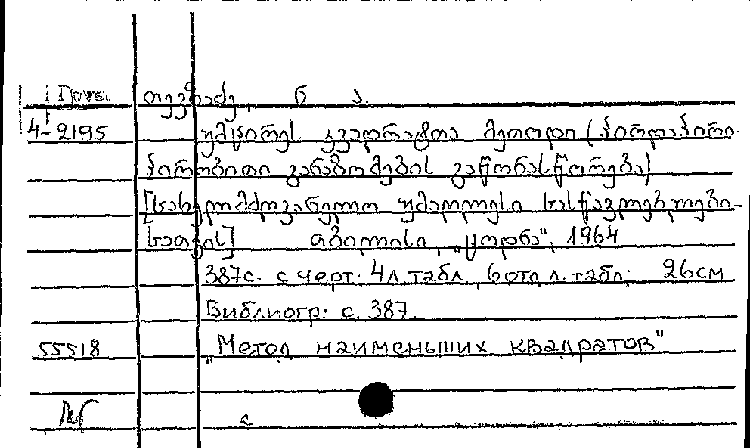 Груз. თევზაძე, ნ. ა.
4-2195 უმცირეს კვადრატთა მეთოდი (პირდაპირი
პირობითი განაზომების გაწონასწორება)
[სახელმძღვანელო უმაღლესი სასწავლებლები-
სათვის] თბილისი, „ცოდნა", 1964
387с. с черт. 4л. табл., 6 отд. л. табл. 26см
Библиогр: с. 387.
55518 „Метод наименьших квадратов"